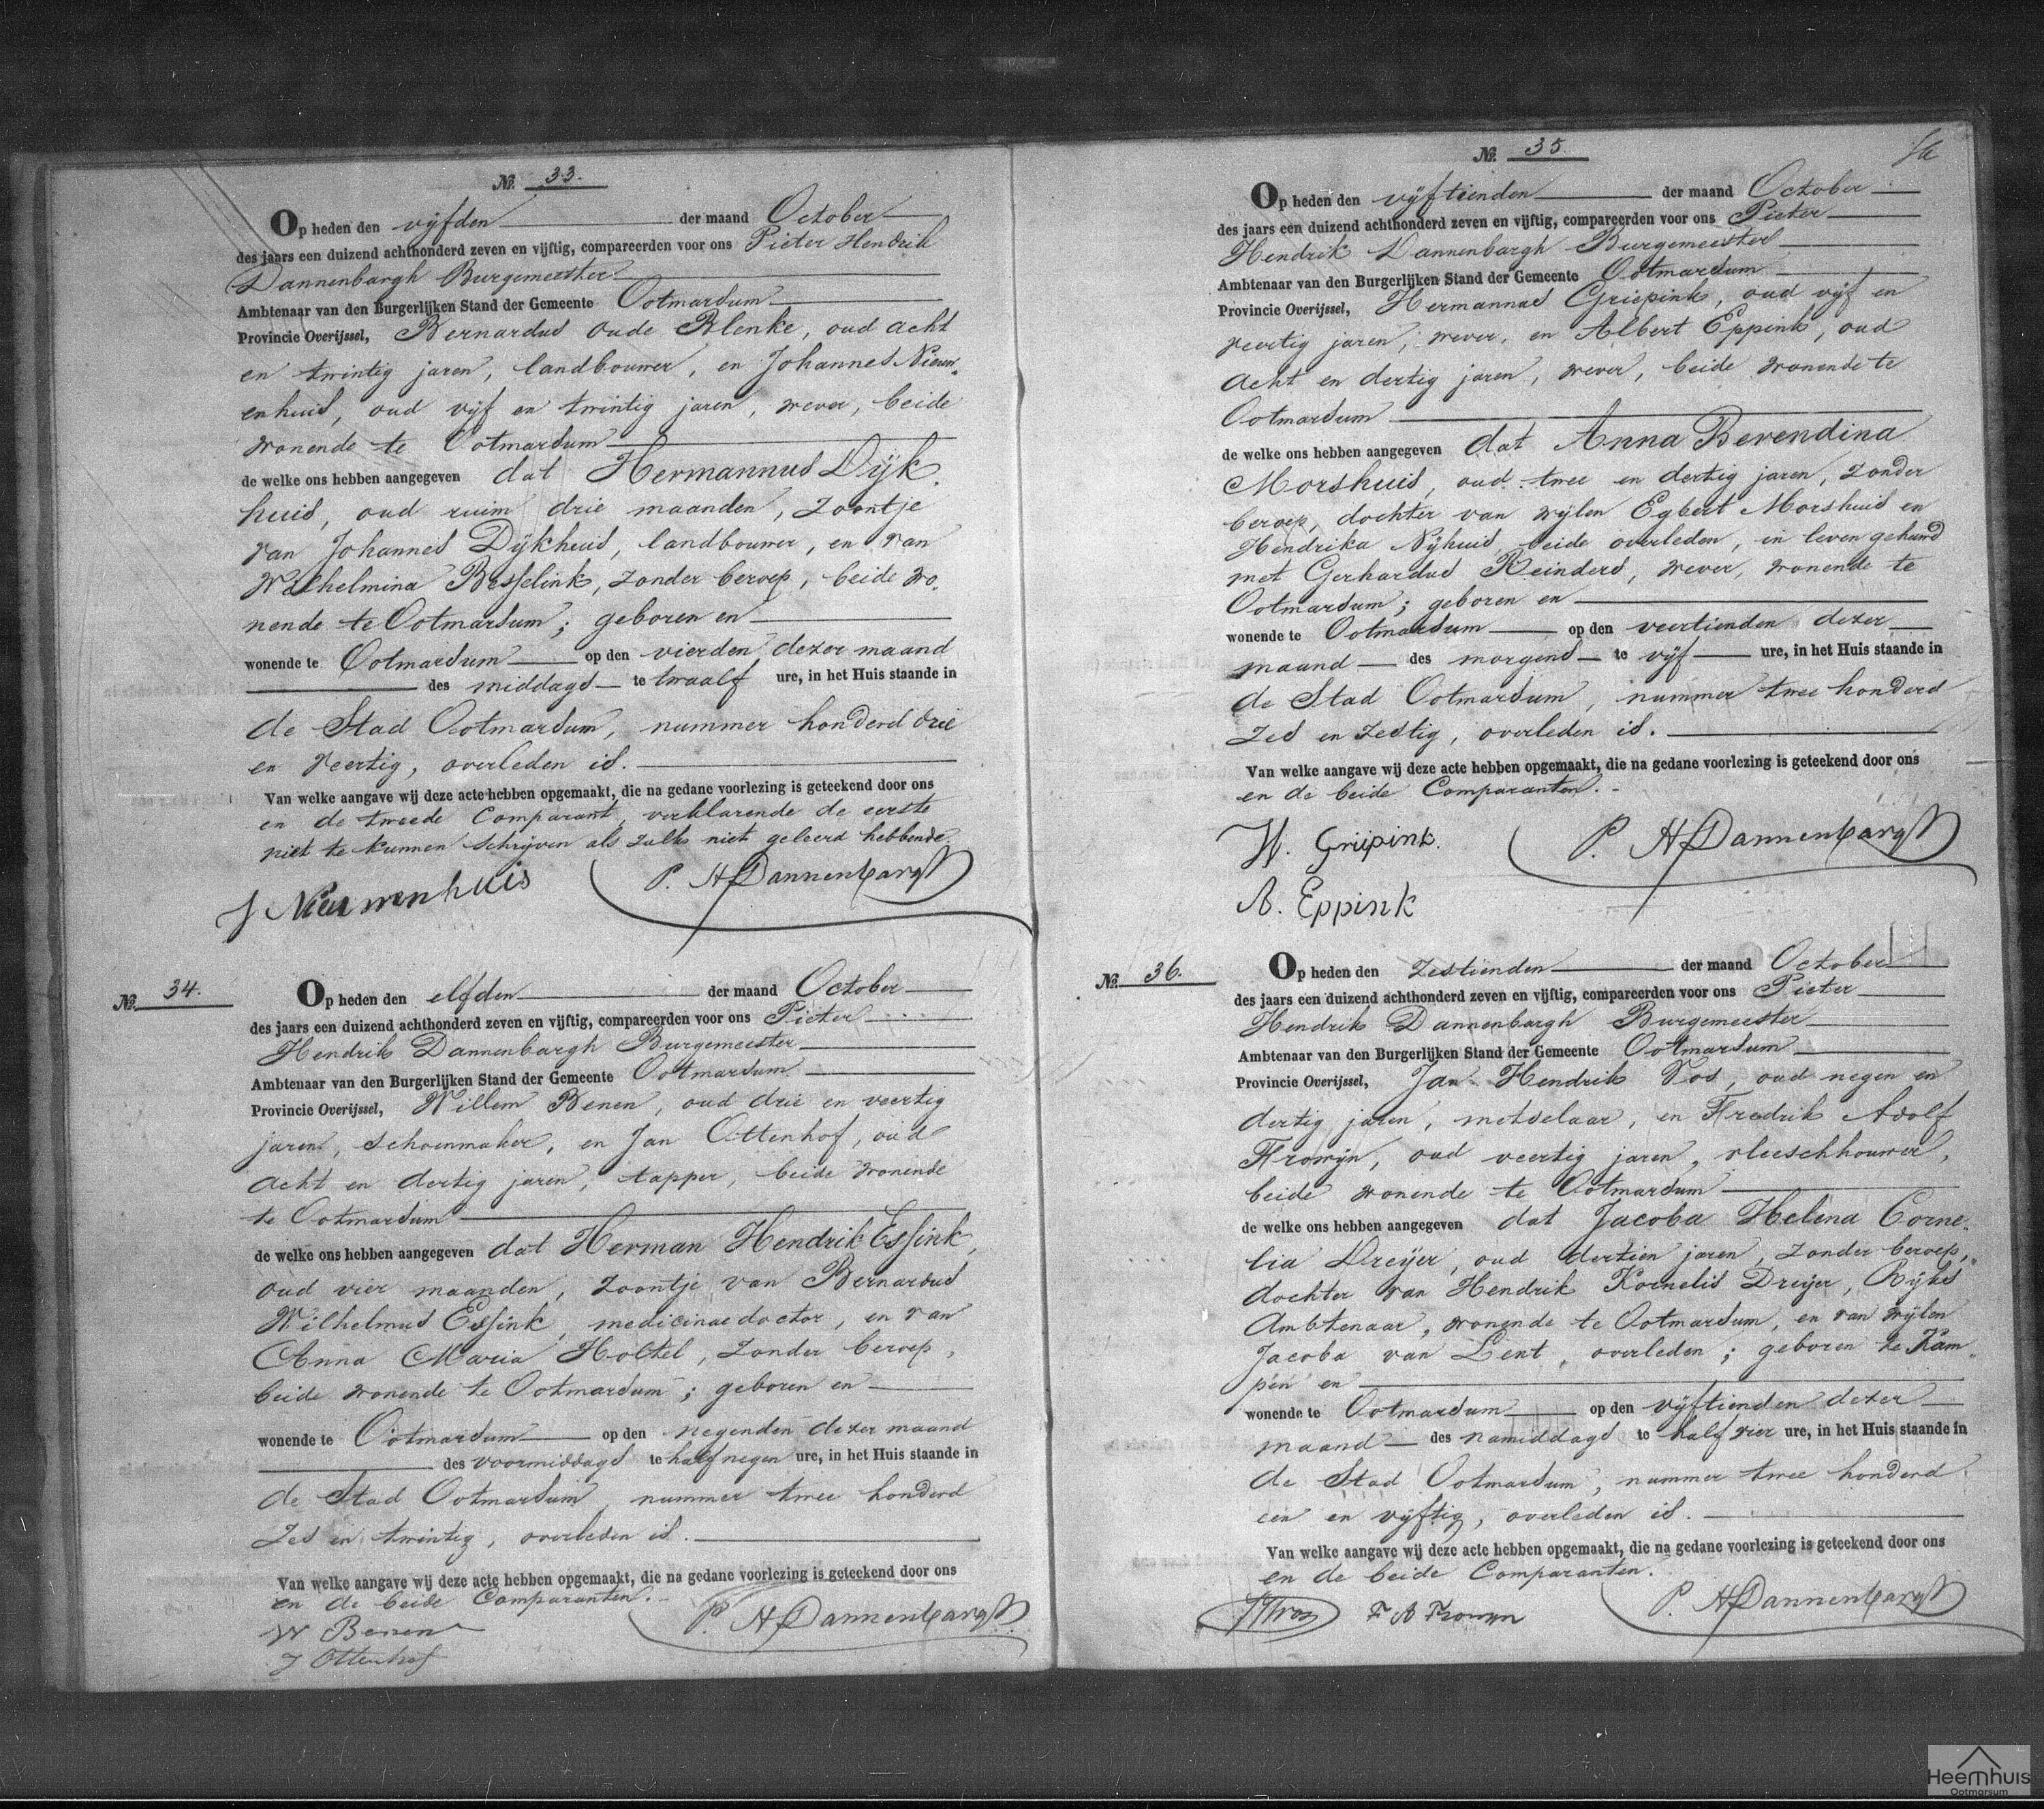 №. 33.
Op heden den vijfden der maand October
des jaars een duizend achthonderd zeven en vijftig, compareerden voor ons Pieter Hendrik
Dannenbargh Burgemeester
Ambtenaar van den Burgerlijken Stand der Gemeente Ootmarsum
Provincie Overijssel, Bernardus oude Blenke, oud acht
en twintig jaren, landbouwer, en Johannes Nieuw-
enhuis, oud vijf en twintig jaren, wever, beide
wonende te Ootmarsum
de welke ons hebben aangegeven dat Hermannus Dijk-
huis, oud ruim drie maanden, zoontje
van Johannes Dijkhuis, landbouwer, en van
Wilhelmina Besselink, zonder beroep, beide wo-
nende te Ootmarsum; geboren en
wonende te Ootmarsum op den vierden dezer maand
des middags te twaalf ure, in het Huis staande in
de Stad Ootmarsum, nummer honderd drie
en veertig, overleden is.
Van welke aangave wij deze acte hebben opgemaakt, die na gedane voorlezing is geteekend door ons
en de tweede Comparant, verklarende de eerste
niet te kunnen schrijven als zulks niet geleerd hebbende.
J Nieuwenhuis P. H Dannenbargh
№. 34.
Op heden den elfden der maand October
des jaars een duizend achthonderd zeven en vijftig, compareerden voor ons Pieter
Hendrik Dannenbargh Burgemeester
Ambtenaar van den Burgerlijken Stand der Gemeente Ootmarsum
Provincie Overijssel, Willem Benen, oud drie en veertig
jaren, schoenmaker, en Jan Ottenhof, oud
acht en dertig jaren, tapper, beide wonende
te Ootmarsum
de welke ons hebben aangegeven dat Herman Hendrik Essink,
oud vier maanden, zoontje van Bernardus
Wilhelmus Essink, medicinae doctor, en van
Anna Maria Holtel, zonder beroep,
beide wonende te Ootmarsum; geboren en
wonende te Ootmarsum op den negenden dezer maand
des voormiddags te half negen ure, in het Huis staande in
de Stad Ootmarsum, nummer twee honderd
zes en twintig, overleden is.
Van welke aangave wij deze acte hebben opgemaakt, die na gedane voorlezing is geteekend door ons
en de beide Comparanten.
W Benen P. H Dannenbargh
J Ottenhof
№. 35.
Op heden den vijftienden der maand October
des jaars een duizend achthonderd zeven en vijftig, compareerden voor ons Pieter
Hendrik Dannenbargh Burgemeester
Ambtenaar van den Burgerlijken Stand der Gemeente Ootmarsum
Provincie Overijssel, Hermannus Griepink, oud vijf en
veertig jaren, wever, en Albert Eppink, oud
acht en dertig jaren, wever, beide wonende te
Ootmarsum
de welke ons hebben aangegeven dat Anna Berendina
Morshuis, oud twee en dertig jaren, zonder
beroep, dochter van wijlen Egbert Morshuis en
Hendrika Nijhuis, beide overleden, in leven gehuwd
met Gerhardus Reinders, wever, wonende te
Ootmarsum; geboren en
wonende te Ootmarsum op den veertienden dezer
maand des morgens te vijf ure, in het Huis staande in
de Stad Ootmarsum, nummer twee honderd
zes en zestig, overleden is.
Van welke aangave wij deze acte hebben opgemaakt, die na gedane voorlezing is geteekend door ons
en de beide Comparanten.
H. Griepink. P. H Dannenbargh
A. Eppink
№. 36.
Op heden den zestienden der maand October
des jaars een duizend achthonderd zeven en vijftig, compareerden voor ons Pieter
Hendrik Dannenbargh Burgemeester
Ambtenaar van den Burgerlijken Stand der Gemeente Ootmarsum
Provincie Overijssel, Jan Hendrik Vos, oud negen en
dertig jaren, metselaar, en Fredrik Adolf
Frowijn, oud veertig jaren, vleeschhouwer,
beide wonende te Ootmarsum
de welke ons hebben aangegeven dat Jacoba Helena Corne-
lia Dreijer, oud dertien jaren, zonder beroep,
dochter van Hendrik Kornelis Dreijer, Rijks
Ambtenaar, wonende te Ootmarsum, en van wijlen
Jacoba van Lent, overleden; geboren te Kam-
pen en
wonende te Ootmarsum op den vijftienden dezer
maand des namiddags te half vier ure, in het Huis staande in
de Stad Ootmarsum, nummer twee honderd
een en vijftig, overleden is.
Van welke aangave wij deze acte hebben opgemaakt, die na gedane voorlezing is geteekend door ons
en de beide Comparanten.
JHVos F A Frowijn P. H Dannenbargh
Heemhuis
Ootmarsum